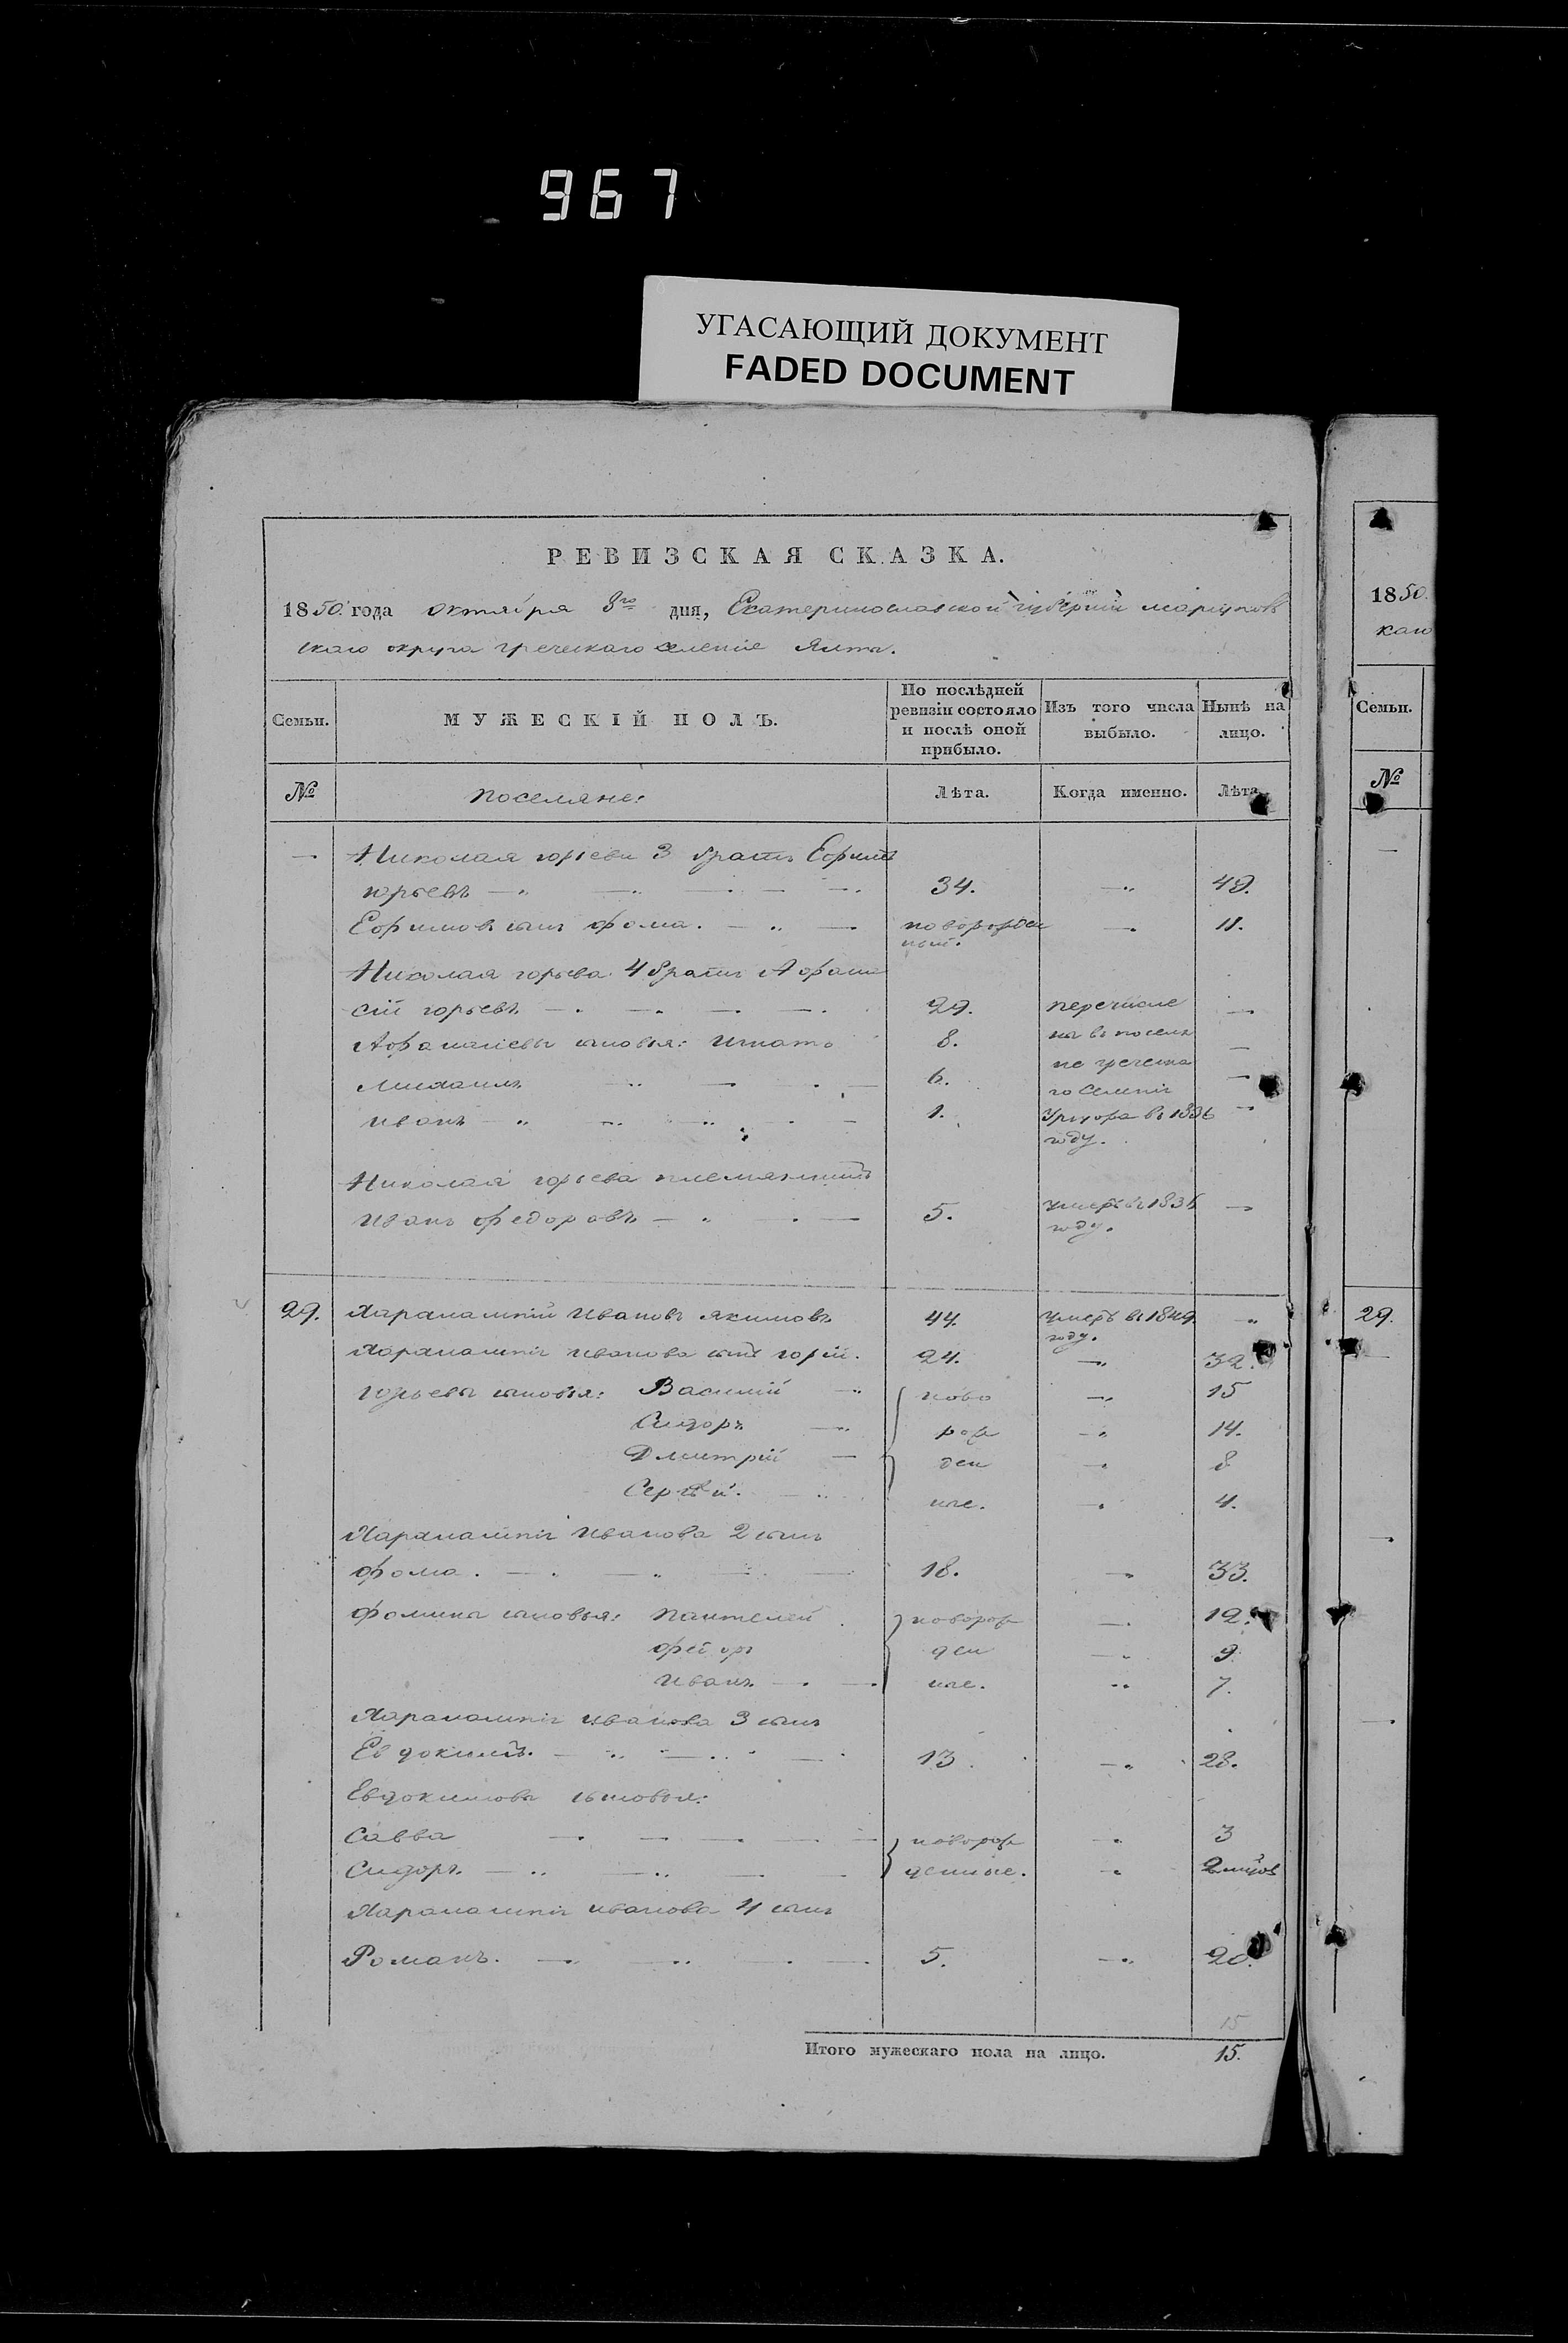 967
УГАСАЮЩИЙ ДОКУМЕНТ
FADED DOCUMENT
РЕВИЗСКАЯ СКАЗКА.
1850. года октября 3го дня, Екатеринославской губерніи маріупольс
каго округа греческаго селеніе Ялта.
Семьи.
МУЖЕСКІЙ ПОЛЪ.
По послѣдней ревизіи состояло и послѣ оной прибыло.
Изъ того числа выбыло.
Нынѣ на лицо.
№
поселяне:
Лѣта.
Когда именно.
Лѣта.
Николая юрьева 3 братъ Ефимъ
юрьевъ 34. 49.
Ефимовъ сынъ фома. новорожден
ный. 11.
Николая юрьева 4 братъ Афана
сій юрьевъ 29. перечисле
Афанасіевы сыновья: игнатъ 8. нъ въ поселя
не греческа
Михаилъ 6. го селенія
иванъ 1. Урзуфа въ 1836
году.
Николая юрьева племянникъ
иванъ федоровъ 5. умеръ въ 1836
году.
29. Харалампій ивановъ якимовъ 44. умеръ въ 1849
году.
Харалампія иванова сынъ юрій. 24. 32.
юрьевы сыновья: Василій ново 15
Сидоръ рож 14.
Дмитрій ден 8
Сергѣй. ные. 4.
Харалампія иванова 2 сынъ
фома. 18. 33.
фомины сыновья: пантелей новорож 12.
федоръ ден 9.
иванъ ные. 7.
Харалампія иванова 3 сынъ
Евдокимъ. 13. 28.
Евдокимовы сыновья:
Савва новорож 3
Сидоръ. денные. 2 мцов
Харалампія иванова 4 сынъ
Романъ. 5. 20.
15
Итого мужескаго пола на лицо. 15.
1850.
каго
Семьи.
№
29.